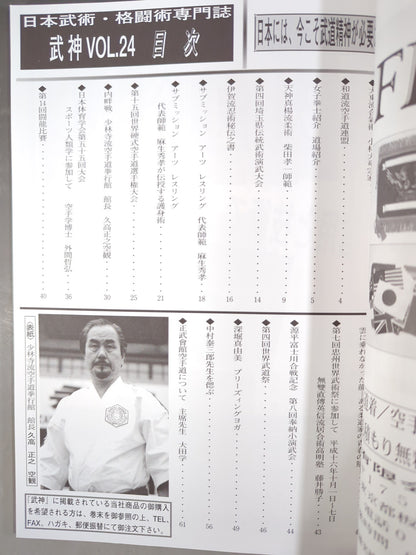 日本武術・格闘術専門誌
武神 VOL.24 目次
日本には、今こそ武道精神が必要
◆和道流空手道連盟 4
◆女子拳士紹介 道場紹介 5
◆天神真楊流柔術 柴田孝一師範 9
◆第四回埼玉県伝統武術演武大会 14
◆伊賀流忍術秘伝之書 16
◆サブミッション アーツ レスリング 代表師範 麻生秀孝 18
◆サブミッション アーツ レスリング
代表師範 麻生秀孝が伝授する護身術 21
◆第十五回世界硬式空手道選手権大会 25
◆内畔戦 少林寺流空手道拳行館 館長 久高正之空観 30
◆日本体育学会第五十五回大会
スポーツ人類学に参加して 空手学博士 外間哲弘 36
◆第14回闘龍比賽 40
◆第七回忠州世界武術祭に参加して 平成十六年十月一日〜七日
無雙直傳英信流居合術高明塾 藤井勝子 43
◆源平富士川合戦記念 第八回奉納小演武会 44
◆第四回世界武道祭 46
◆深堀真由美 ブリーズィングヨガ 49
◆中村泰三郎先生を偲ぶ 56
◆正武會館空手道について 主城先生 大田学 61
表紙 少林寺流空手道拳行館 館長 久高 正之 空観
「武神」に掲載されている当社商品の御購入
を希望される方は、巻末を御参照の上、TEL、
FAX、ハガキ、郵便振替にて御注文下さい。